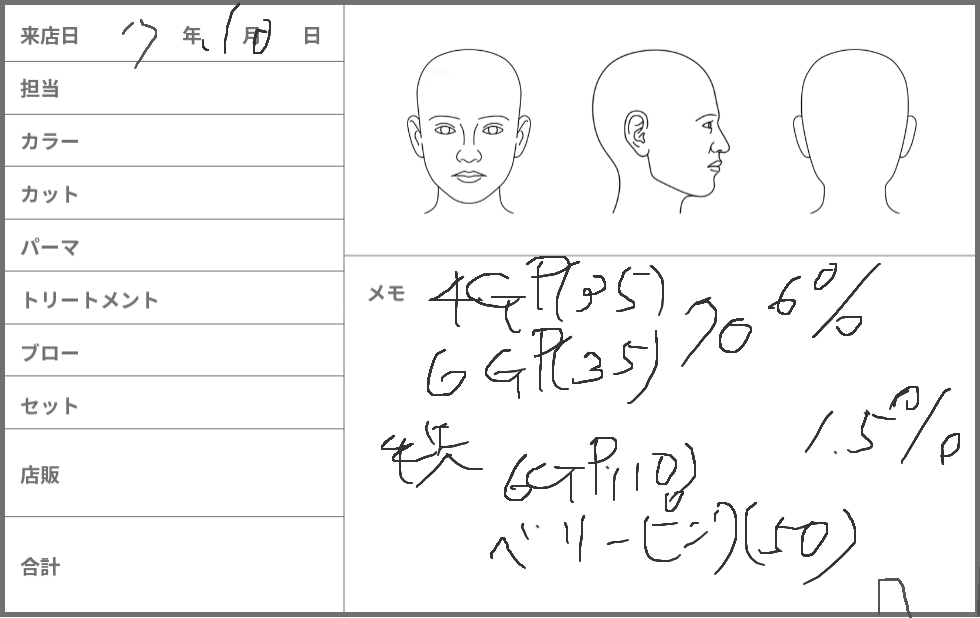 来店日 17年 1月 日
担当
カラー
カット
パーマ
トリートメント
ブロー
セット
店販
合計
メモ
4GP(35)
6GP(35) 70 6%
1.5%
毛先 6GP(10)
ベリーピンク(50)